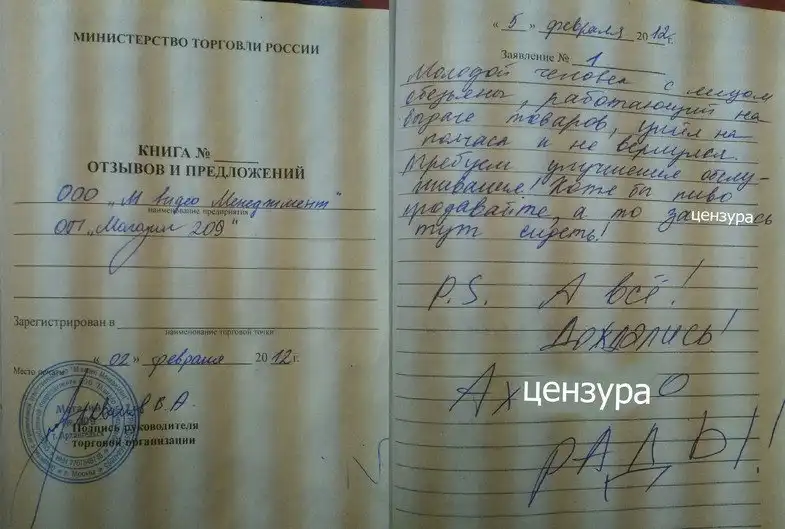 МИНИСТЕРСТВО ТОРГОВЛИ РОССИИ
КНИГА №
ОТЗЫВОВ И ПРЕДЛОЖЕНИЙ
ООО „М видео Менеджмент"
наименование предприятия
ОП „Магазин 209"
Зарегистрирован в
наименование торговой точки
« 02 » февраля 2012 г.
Место печати
В.А.
Подпись руководителя
торговой организации
« 5 » февраля 2012 г.
Заявление № 1
Молодой человек с лицом
обезьяны, работающий на
выдаче товаров, ушёл на
полчаса и не вернулся.
Требуем улучшения обслу-
живания! Хотя бы пиво
продавайте, а то за цензура сь
тут сидеть!
P.S. А всё!
Дождались!
Ах цензура о
РАДЫ!!